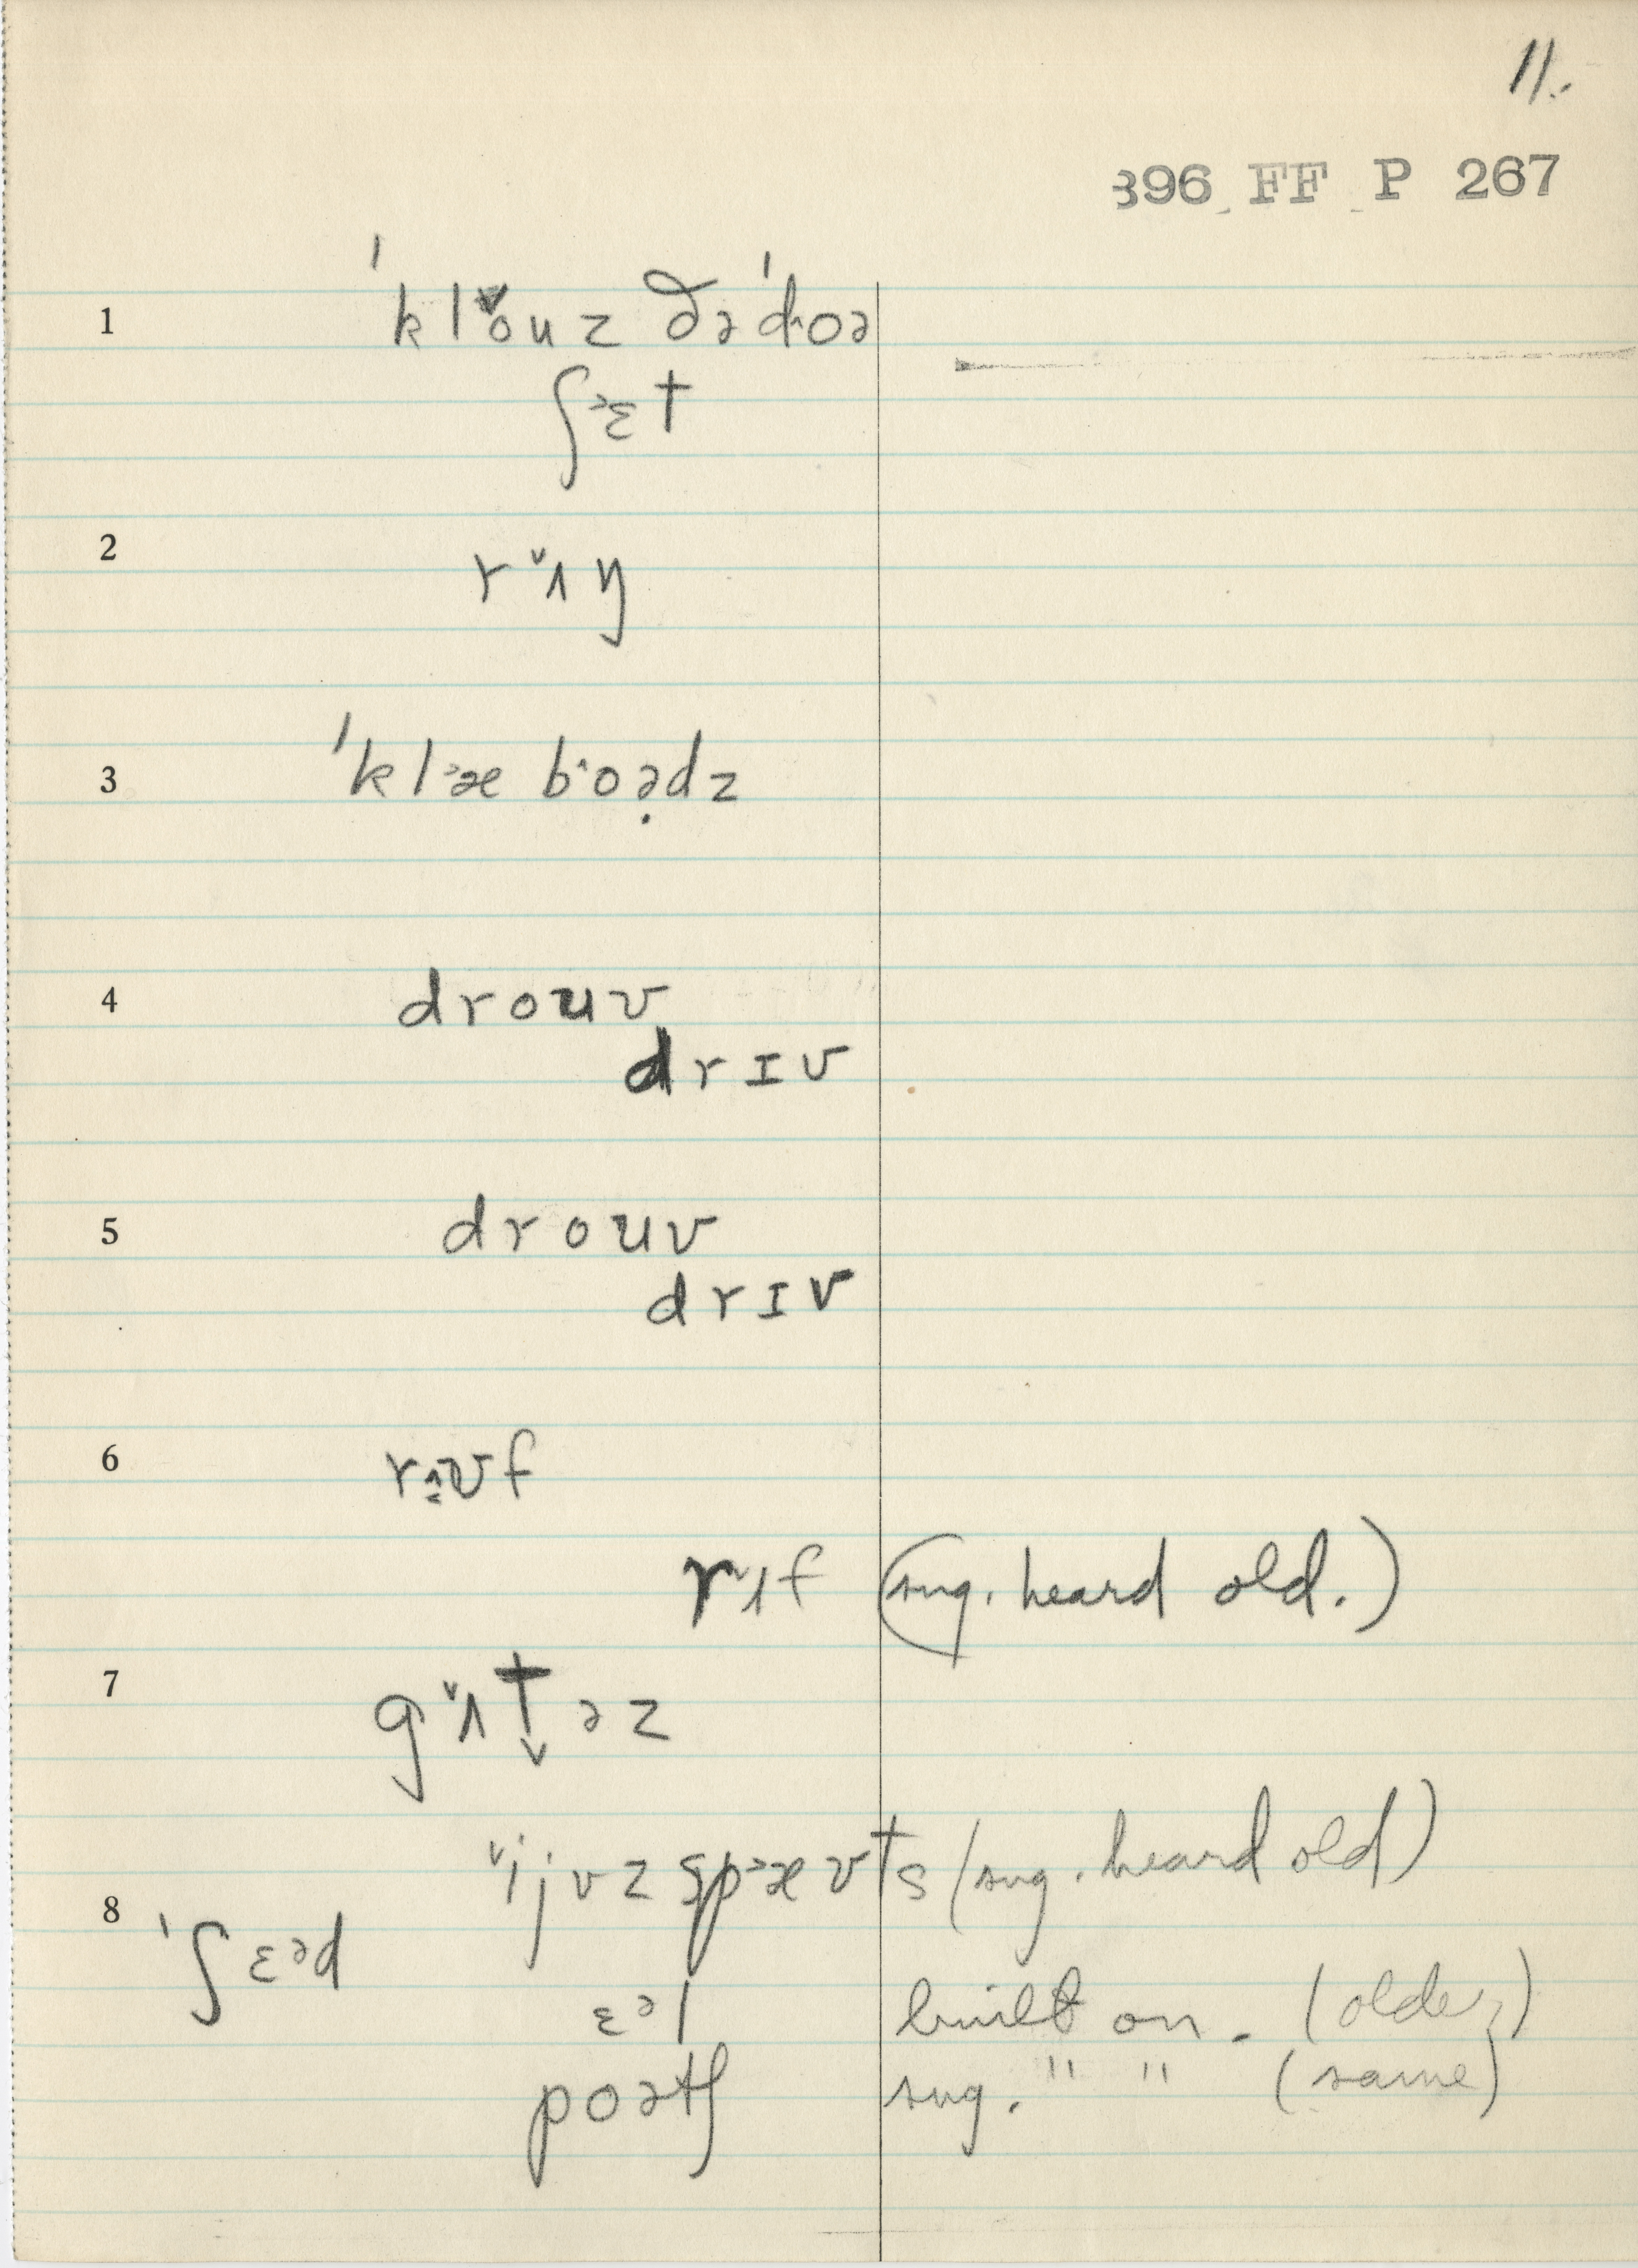 11.
396 FF P 267
1 ˈklˇouz ðəˈdoə
ʃ˃ɛt
2 r ˇʌ ŋ
3 ˈkl˃æ b˄oə̣dz
4 drouv
drɪv
5 drouv
drɪv
6 rʌ̝ʊf
rˇʌf (sug. heard old.)
7 gˇʌt̬əz
ˇijvz sp˃æʊts (sug. heard old)
8 ˈʃɛəd
ɛəl built on. (older)
poətʃ sug. " " (same)